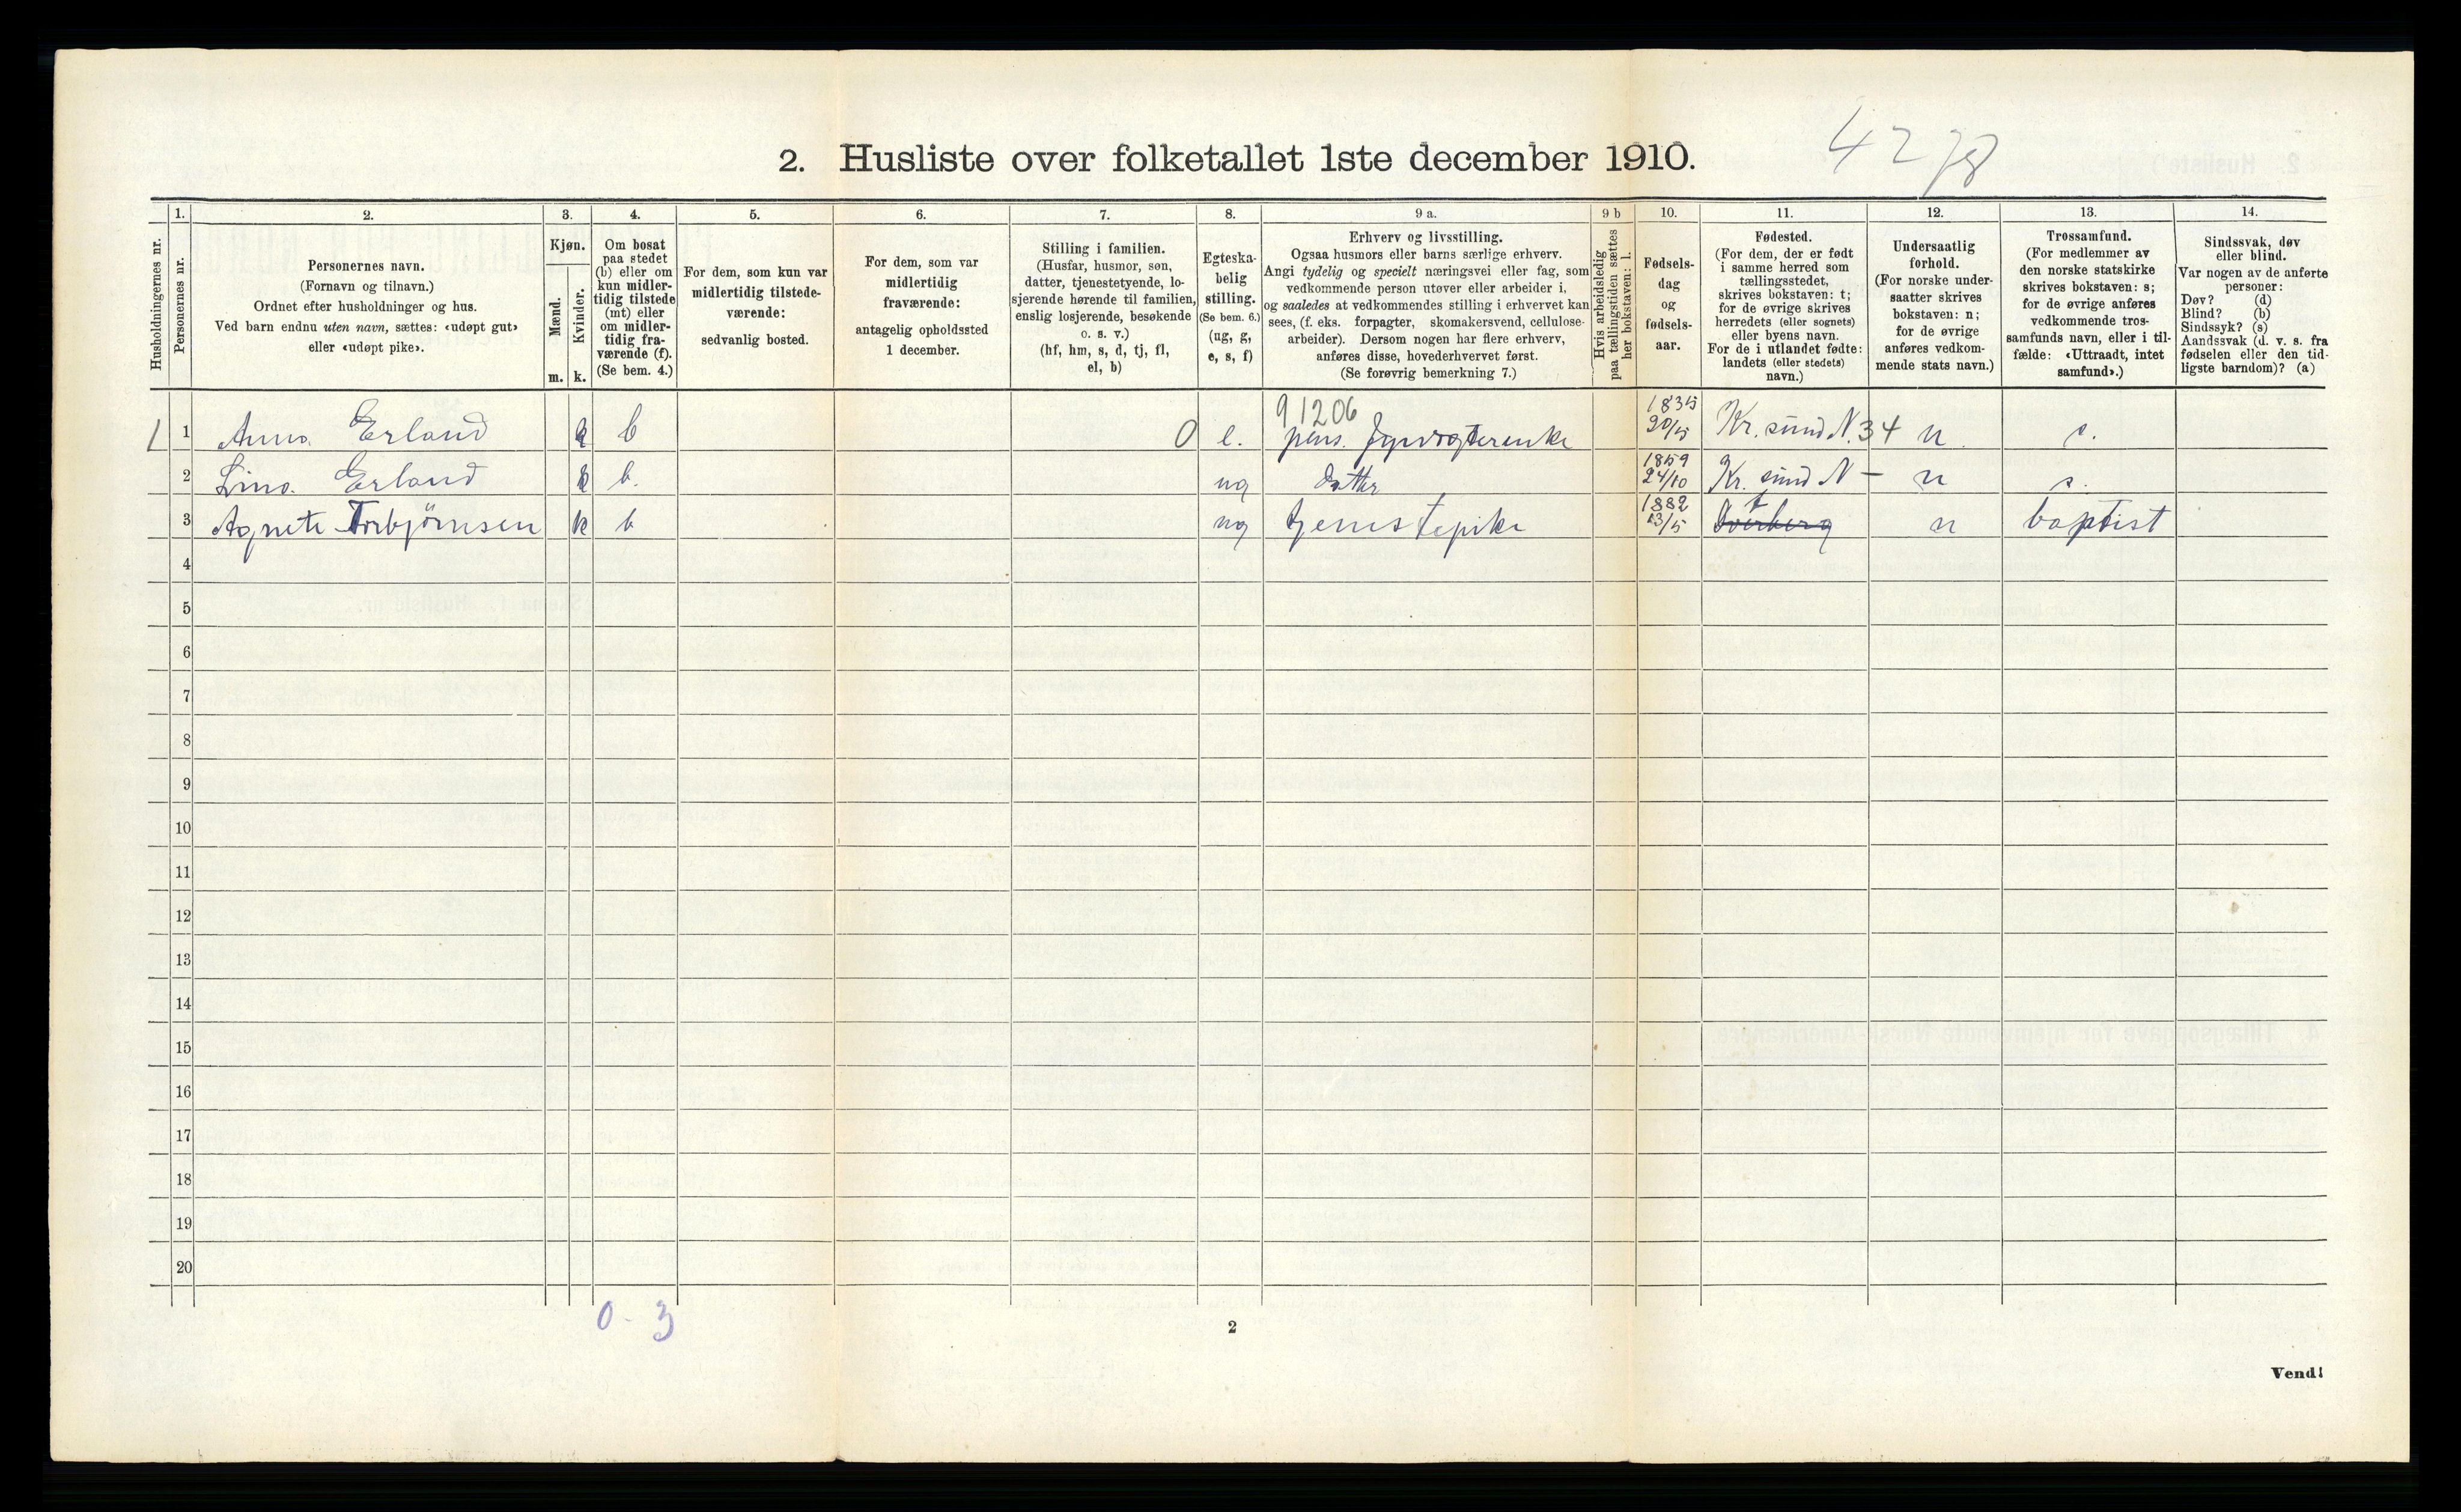 2. Husliste over folketallet 1ste december 1910.
42
Husholdningernes nr.
1.
Personernes nr.
2.
Personernes navn.
(Fornavn og tilnavn.)
Ordnet efter husholdninger og hus.
Ved barn endnu uten navn, sættes: «udøpt gut»
eller «udøpt pike».
3.
Kjøn.
Mænd.
Kvinder.
m. k.
4.
Om bosat
paa stedet
(b) eller om
kun midler-
tidig tilstede
(mt) eller
om midler-
tidig fra-
værende (f).
(Se bem. 4.)
5.
For dem, som kun var
midlertidig tilstede-
værende:
sedvanlig bosted.
6.
For dem, som var
midlertidig
fraværende:
antagelig opholdssted
1 december.
7.
Stilling i familien.
(Husfar, husmor, søn,
datter, tjenestetyende, lo-
sjerende hørende til familien,
enslig losjerende, besøkende
o. s. v.)
(hf, hm, s, d, tj, fl,
el, b)
8.
Egteska-
belig
stilling.
(Se bem. 6.)
(ug, g,
e, s, f)
9 a.
Erhverv og livsstilling.
Ogsaa husmors eller barns særlige erhverv.
Angi tydelig og specielt næringsvei eller fag, som
vedkommende person utøver eller arbeider i,
og saaledes at vedkommendes stilling i erhvervet kan
sees, (f. eks. forpagter, skomakersvend, cellulose-
arbeider). Dersom nogen har flere erhverv,
anføres disse, hovederhvervet først.
(Se forøvrig bemerkning 7.)
9 b
Hvis arbeidsledig
paa tællingstiden sættes
her bokstaven: l.
10.
Fødsels-
dag
og
fødsels-
aar.
11.
Fødested.
(For dem, der er født
i samme herred som
tællingsstedet,
skrives bokstaven: t;
for de øvrige skrives
herredets (eller sognets)
eller byens navn.
For de i utlandet fødte:
landets (eller stedets)
navn.)
12.
Undersaatlig
forhold.
(For norske under-
saatter skrives
bokstaven: n;
for de øvrige
anføres vedkom-
mende stats navn.)
13.
Trossamfund.
(For medlemmer av
den norske statskirke
skrives bokstaven: s;
for de øvrige anføres
vedkommende tros-
samfunds navn, eller i til-
fælde: «Uttraadt, intet
samfund».)
14.
Sindssvak, døv
eller blind.
Var nogen av de anførte
personer:
Døv? (d)
Blind? (b)
Sindssyk? (s)
Aandssvak (d. v. s. fra
fødselen eller den tid-
ligste barndom)? (a)
91206
1 1 Anna Erland k b 0 e. pens. fyrvogterenke 1835 20/5 Kr. sund N. 34 n s.
2 Lina Erland k b. ug datter 1859 24/10 Kr. sund N – n s.
3 Agnete Torbjörnsen k b ug tjenestepike 1882 23/5 t n baptist
4
5
6
7
8
9
10
11
12
13
14
15
16
17
18
19
20
0 - 3
2
Vend!